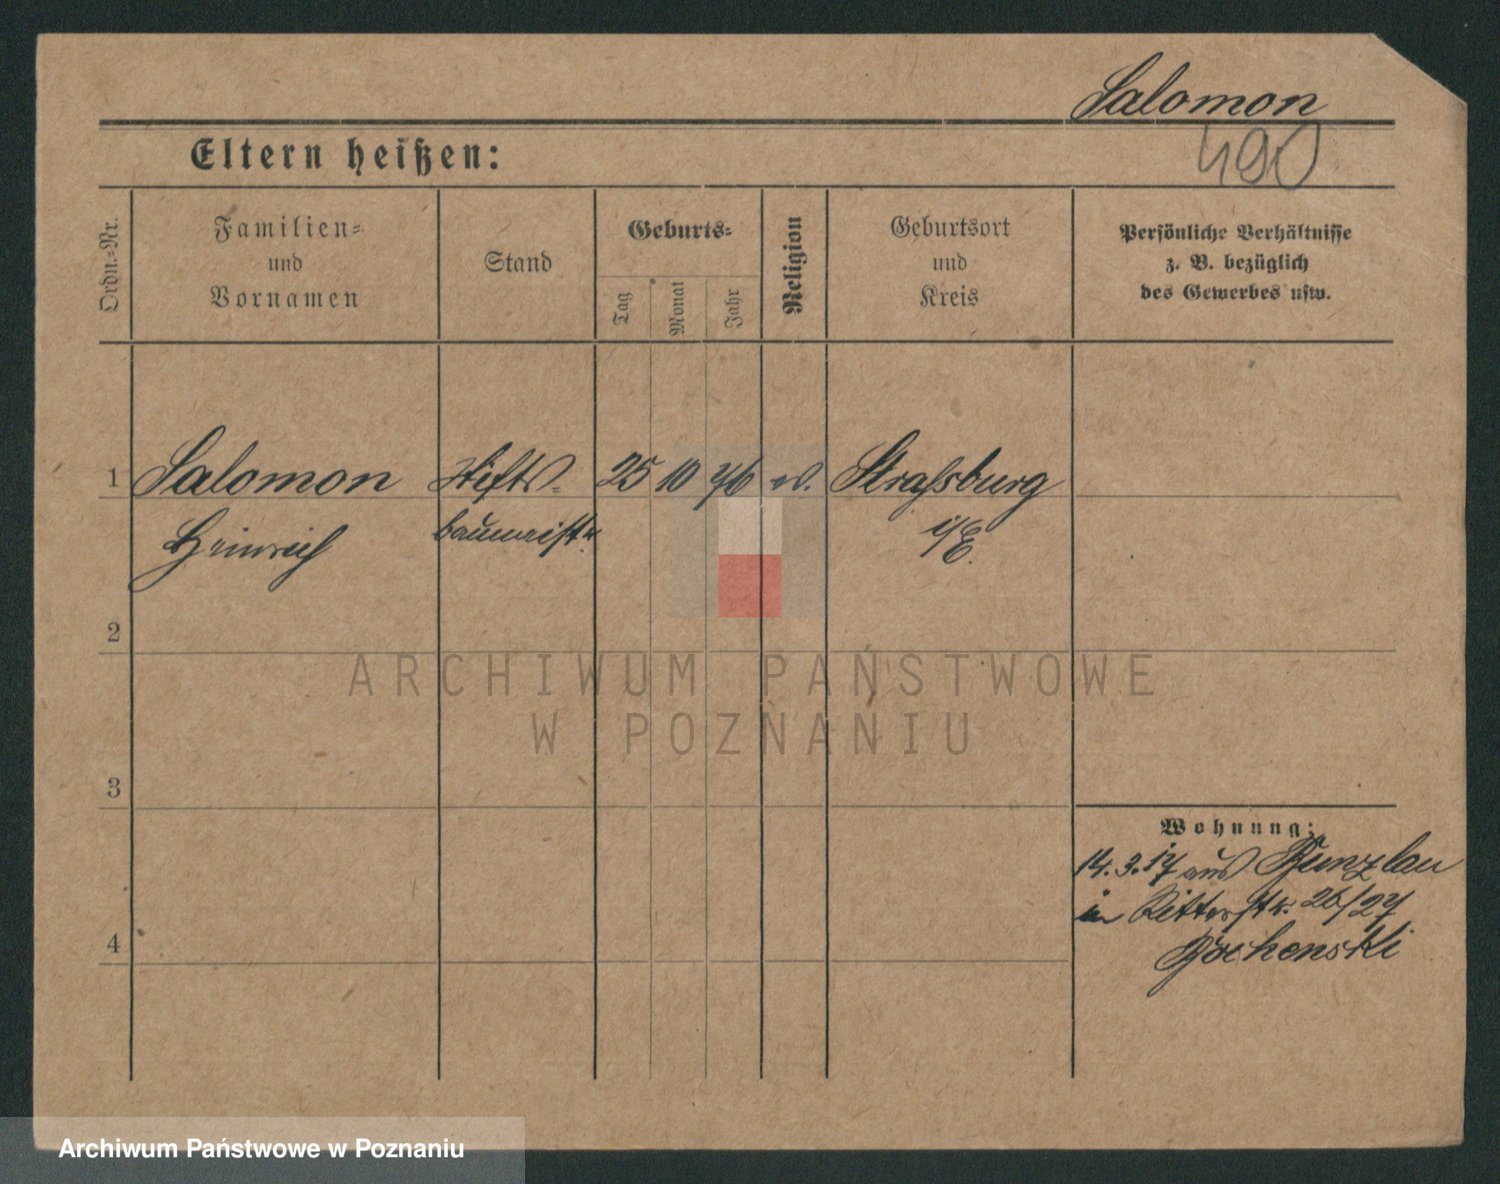 Salomon
490
Eltern heißen:
Ordn.-Nr.
Familien-
und
Vornamen
Stand
Geburts-
Tag
Monat
Jahr
Religion
Geburtsort
und
Kreis
Persönliche Verhältnisse
z. B. bezüglich
des Gewerbes usw.
1
Salomon
Heinrich
baumeistr.
25 10 76
ev.
Strassburg
i/E.
2
ARCHIWUM PAŃSTWOWE
W POZNANIU
3
Wohnung:
14. 3. 17 aus Bunzlau
in Ritterstr. 26/27
Bochenski
4
Archiwum Państwowe w Poznaniu